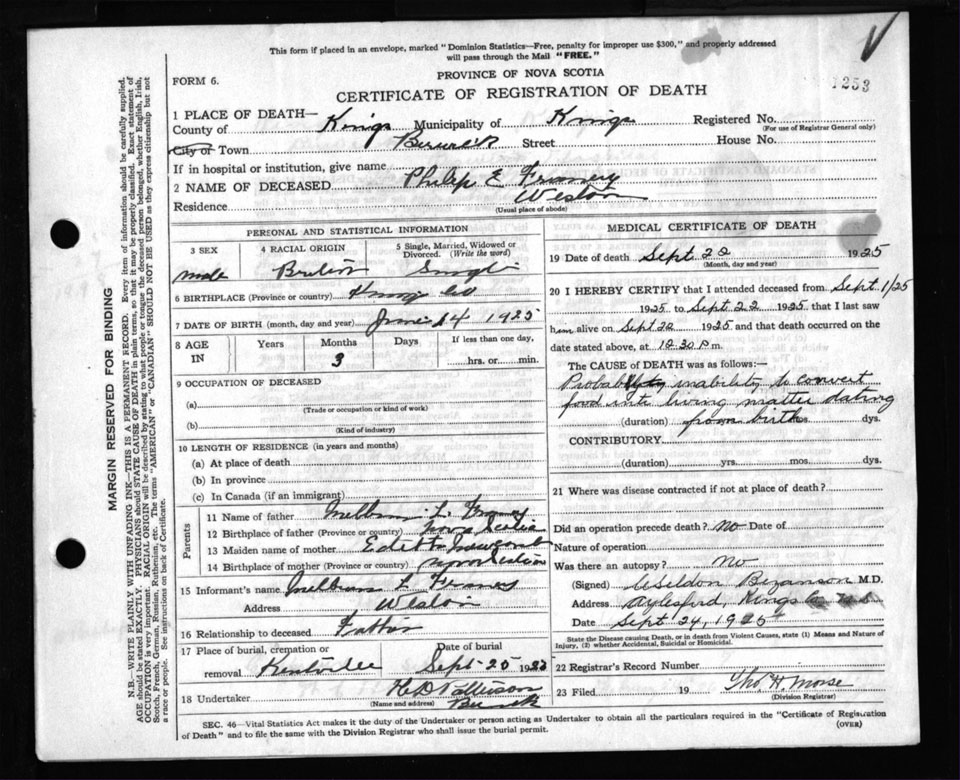 This form if placed in an envelope, marked "Dominion Statistics—Free, penalty for improper use $300," and properly addressed
will pass through the Mail "FREE."
PROVINCE OF NOVA SCOTIA
FORM 6.
1253
CERTIFICATE OF REGISTRATION OF DEATH
1 PLACE OF DEATH—
County of Kings Municipality of Kings Registered No.
(For use of Registrar General only)
City or Town Berwick Street House No.
If in hospital or institution, give name
2 NAME OF DECEASED Philip E
Residence Weston
(Usual place of abode)
PERSONAL AND STATISTICAL INFORMATION
3 SEX 4 RACIAL ORIGIN 5 Single, Married, Widowed or Divorced. (Write the word)
male British Single
6 BIRTHPLACE (Province or country) Kings Co
7 DATE OF BIRTH (month, day and year) June 14 1925
8 AGE IN Years Months Days If less than one day,
3 hrs. or min.
9 OCCUPATION OF DECEASED
(a)
(Trade or occupation or kind of work)
(b)
(Kind of industry)
10 LENGTH OF RESIDENCE (in years and months)
(a) At place of death
(b) In province
(c) In Canada (if an immigrant)
Parents
11 Name of father L.
12 Birthplace of father (Province or country) Nova Scotia
13 Maiden name of mother Newcomb
14 Birthplace of mother (Province or country) Nova Scotia
15 Informant's name L
Address Weston
16 Relationship to deceased Father
17 Place of burial, cremation or removal Date of burial
Sept 25 192
18 Undertaker H D
(Name and address) Berwick
MEDICAL CERTIFICATE OF DEATH
19 Date of death Sept 22 1925
(Month, day and year)
20 I HEREBY CERTIFY that I attended deceased from Sept 1/25
1925 to Sept 22 1925 that I last saw
him alive on Sept 22 1925 and that death occurred on the
date stated above, at 12.30 P m.
The CAUSE OF DEATH was as follows:—
Probably inability to convert
food into living matter dating
(duration) from birth mos. dys.
CONTRIBUTORY
(duration) yrs. mos. dys.
21 Where was disease contracted if not at place of death?
Did an operation precede death? No Date of
Nature of operation
Was there an autopsy? No
(Signed) Weldon Bezanson M.D.
Address Aylesford, Kings Co N.S.
Date Sept 24, 1925
State the Disease causing Death, or in death from Violent Causes, state (1) Means and Nature of
Injury, (2) whether Accidental, Suicidal or Homicidal.
22 Registrar's Record Number
23 Filed 19 Thos H Morse
(Division Registrar)
SEC. 46—Vital Statistics Act makes it the duty of the Undertaker or person acting as Undertaker to obtain all the particulars required in the "Certificate of Registration
of Death" and to file the same with the Division Registrar who shall issue the burial permit.
(OVER)
MARGIN RESERVED FOR BINDING
N.B.—WRITE PLAINLY WITH UNFADING INK—THIS IS A PERMANENT RECORD. Every item of information should be carefully supplied.
AGE should be stated EXACTLY. PHYSICIANS should STATE CAUSE OF DEATH in plain terms, so that it may be properly classified. Exact statement of
OCCUPATION is very important. RACIAL ORIGIN will be described by stating to what people or tongue the deceased person belonged, whether English, Irish,
Scotch, French, German, Russian, Ruthenian, etc. The terms "AMERICAN" or "CANADIAN" SHOULD NOT BE USED as they express citizenship but not
a race or people. See instructions on back of Certificate.